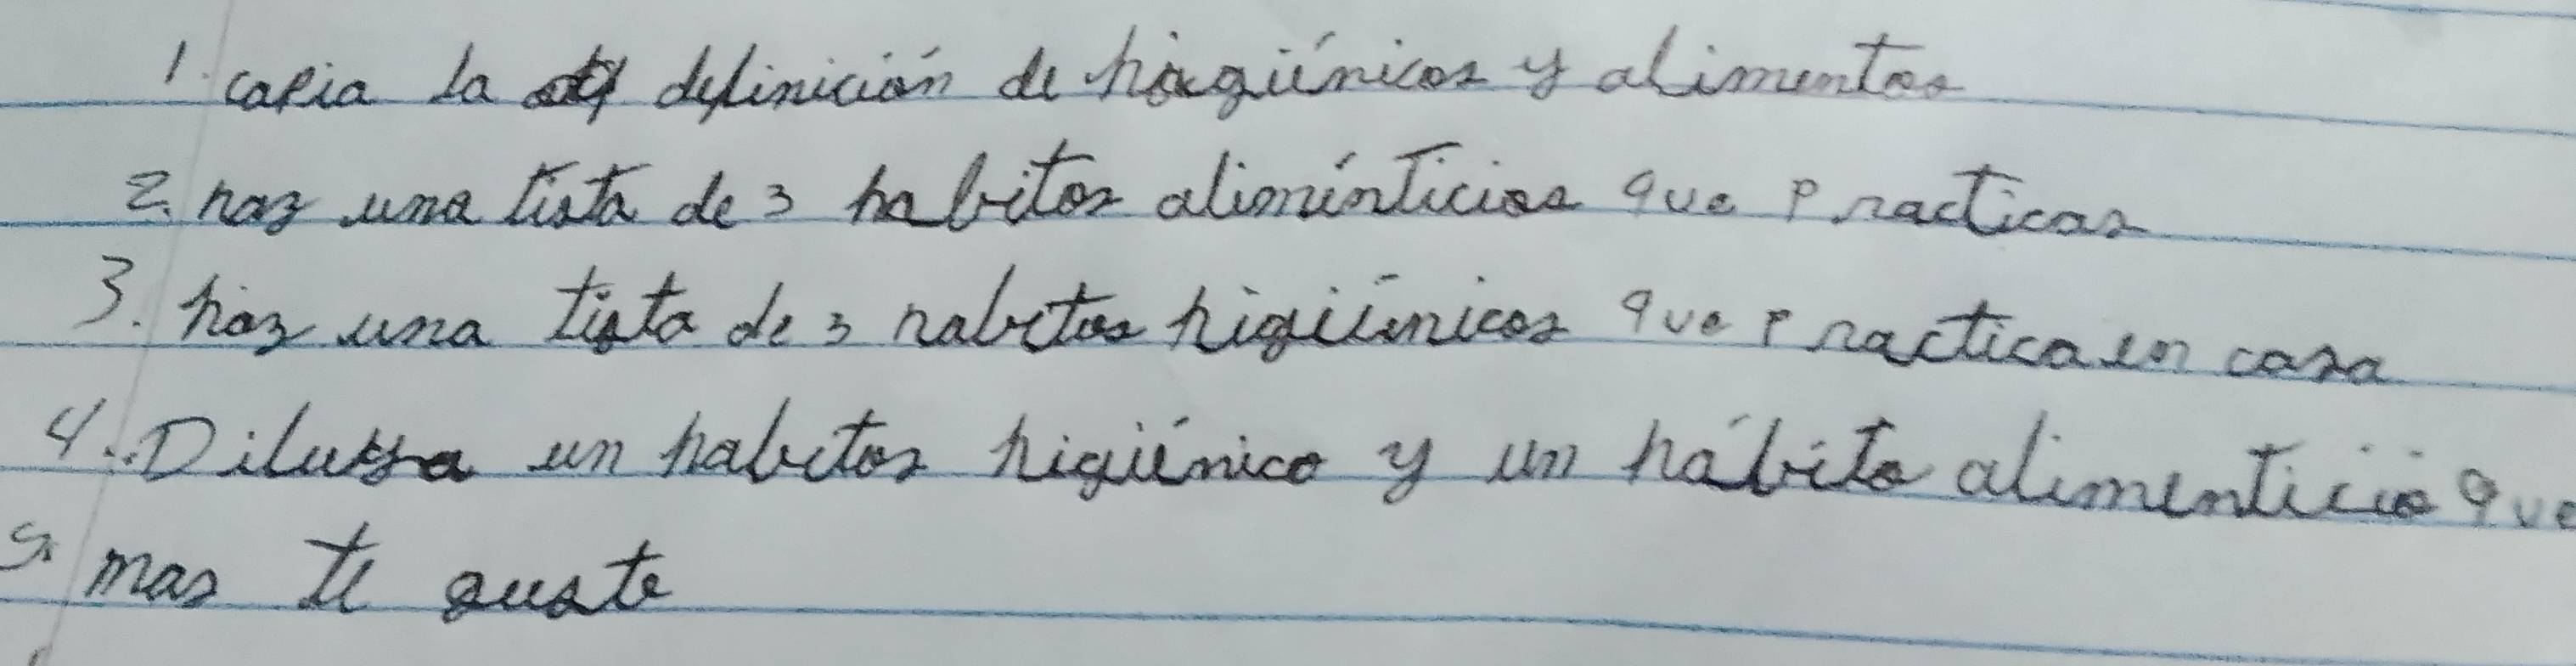 1. copia la definición de higiénicos y alimentos
2. haz una tista de 3 habitos aliménticios que practicas
3. haz una tista de 3 habitos higiénicos que practica en casa
4. Dilusra un habitos higiénico y un hábito alimenticio que
5. mas te guste